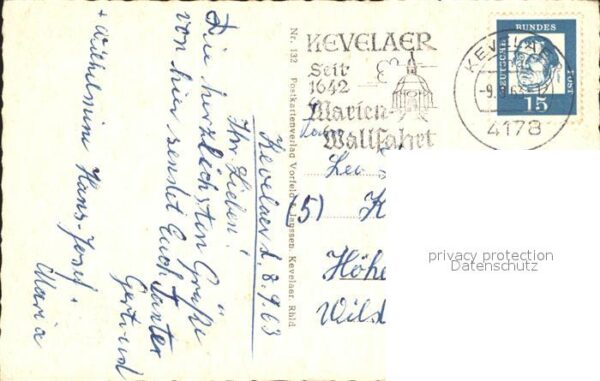 Kevelaer d. 8.9.63
Ihr Lieben!
Die herzlichsten Grüße
von hier sendet Euch Tante
Gertrud
+ Wilhelmine Hans-Josef
Maria
Nr. 132 Postkartenverlag Vorfeld & Janssen, Kevelaer, Rhld.
KEVELAER
Seit
1642
Marien-
Wallfahrt
KEVELAER
-9.
4178
DEUTSCHE
BUNDES
POST
15
(5) K
Höhe
Wild
privacy protection
Datenschutz